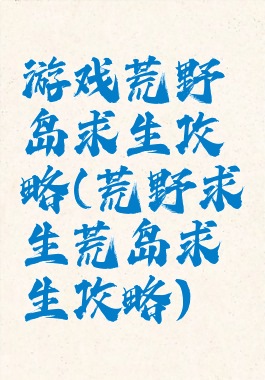 游戏荒野
岛求生攻
略(荒野求
生荒岛求
生攻略)